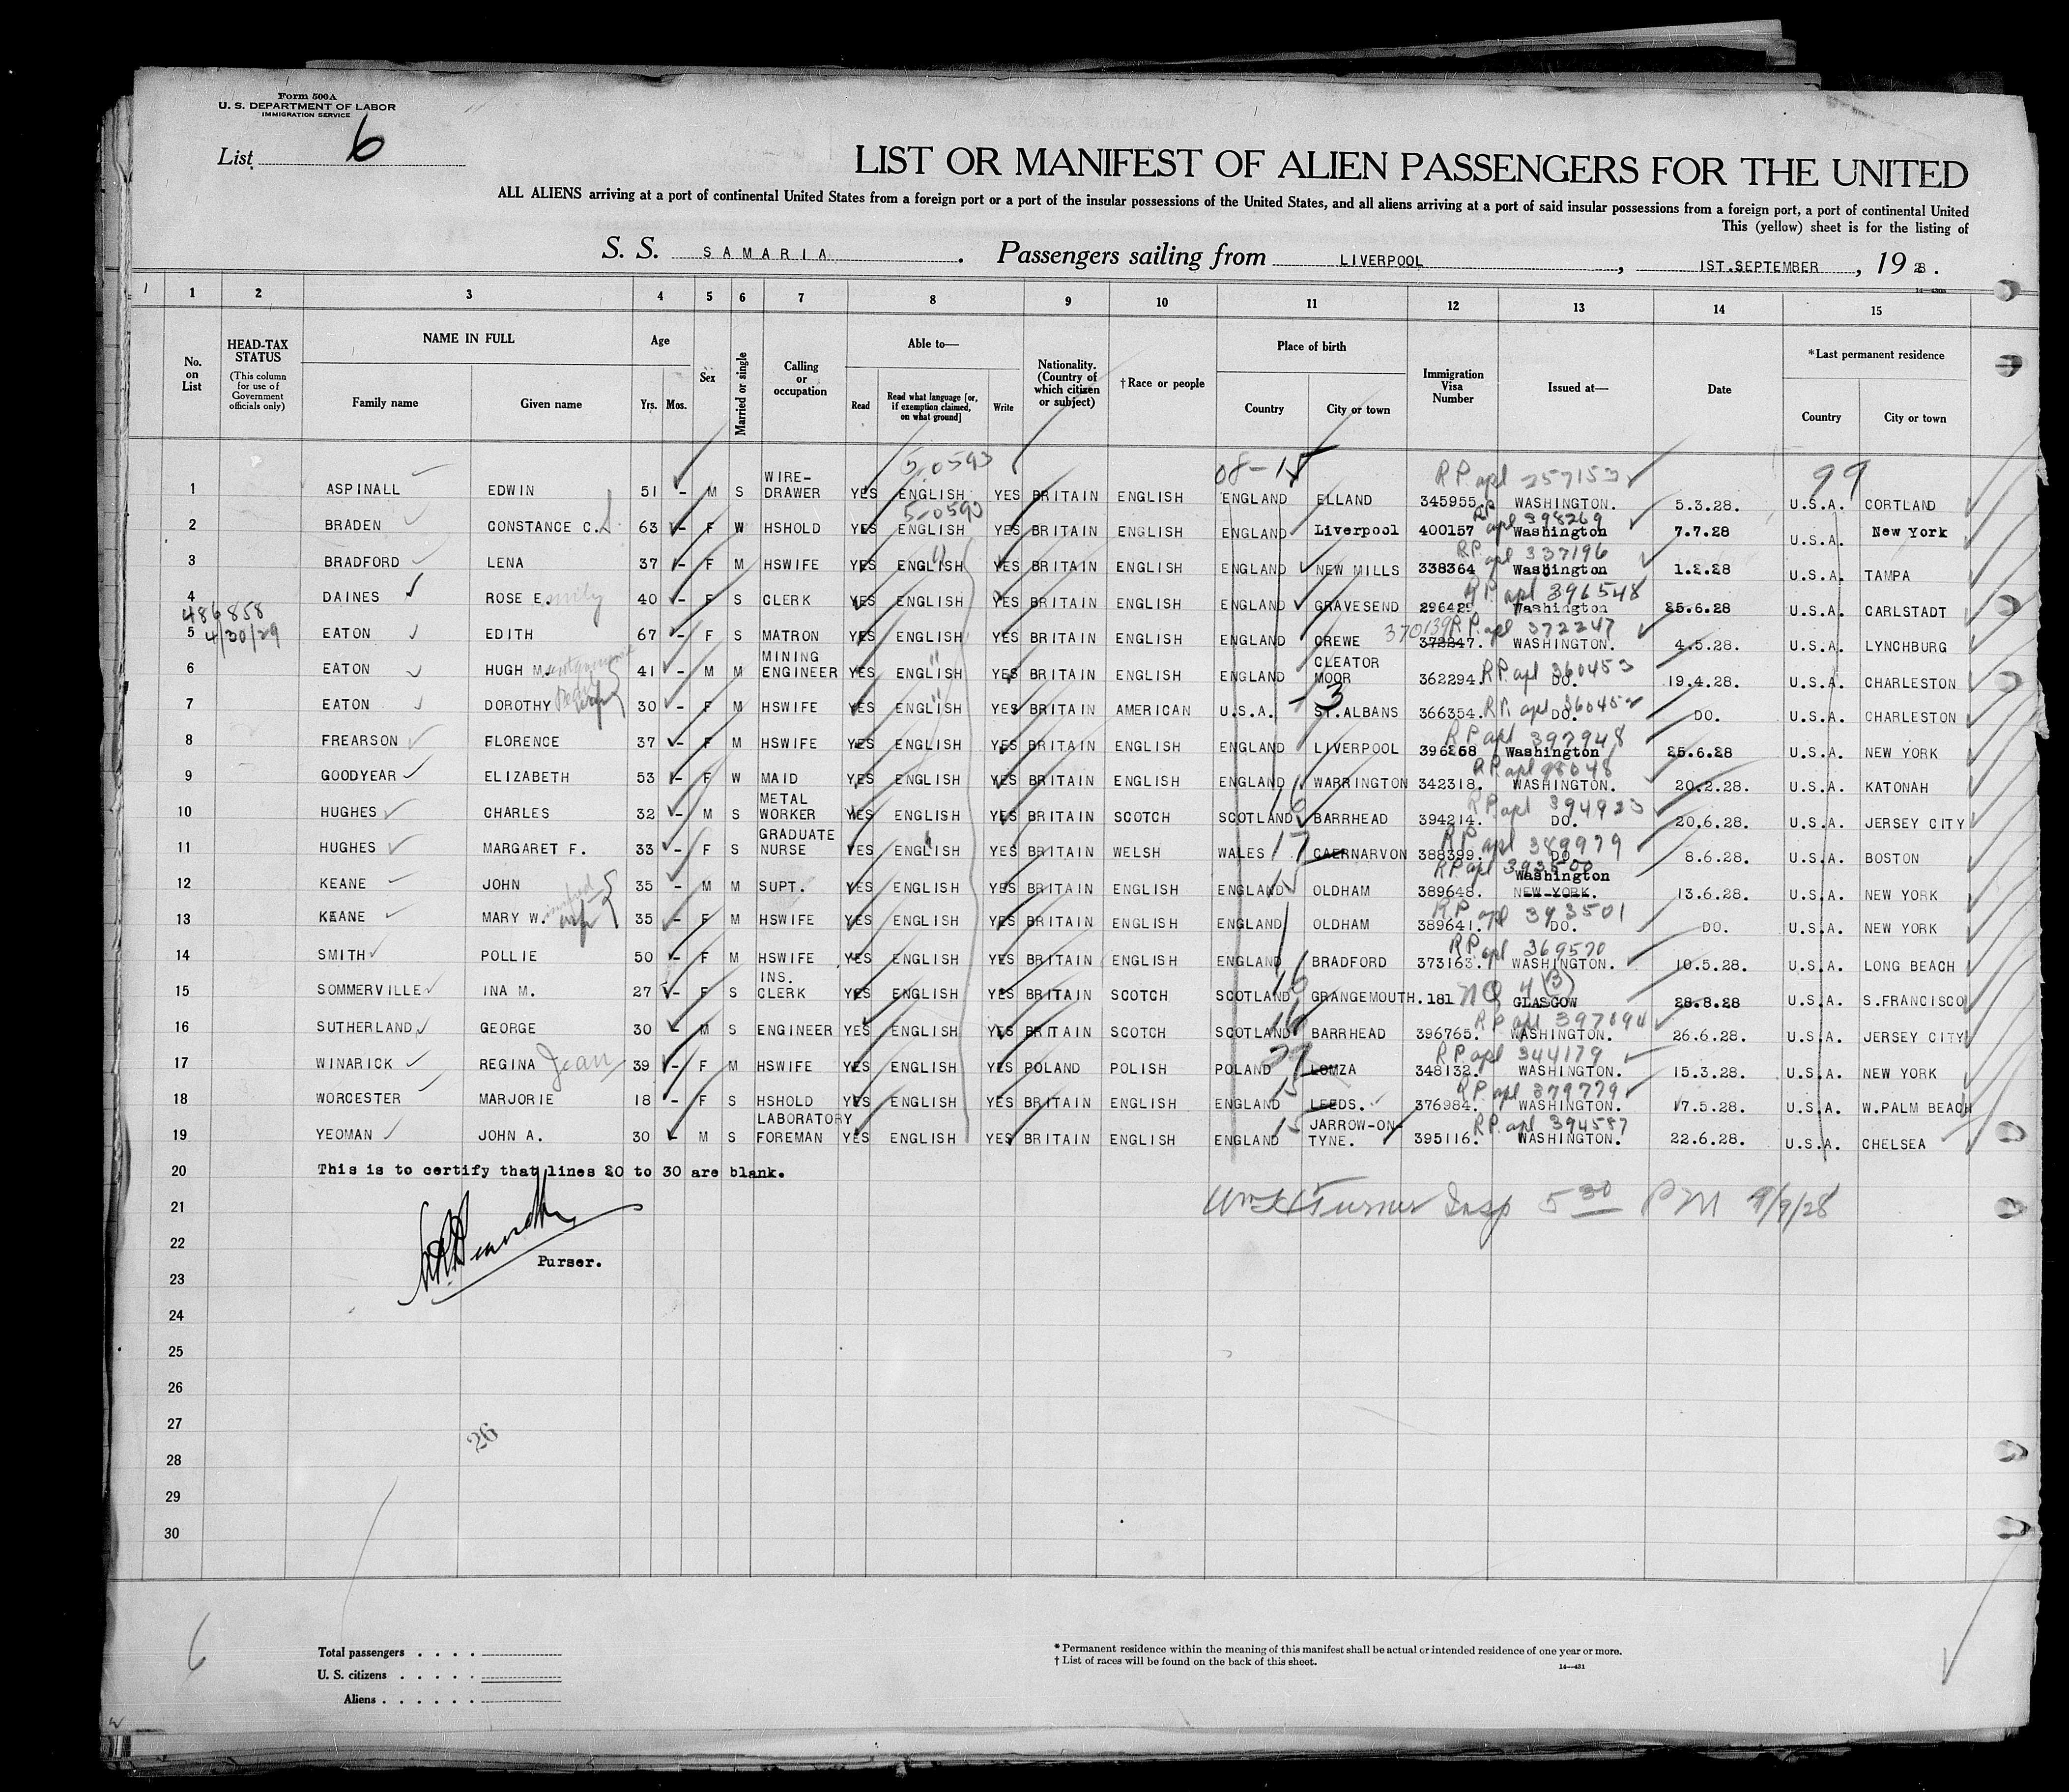 Form 500A
U. S. DEPARTMENT OF LABOR
IMMIGRATION SERVICE
List 6
LIST OR MANIFEST OF ALIEN PASSENGERS FOR THE UNITED
ALL ALIENS arriving at a port of continental United States from a foreign port or a port of the insular possessions of the United States, and all aliens arriving at a port of said insular possessions from a foreign port, a port of continental United
This (yellow) sheet is for the listing of
S. S. SAMARIA. Passengers sailing from LIVERPOOL, 1ST.SEPTEMBER, 1928.
14—430a
1 2 3 4 5 6 7 8 9 10 11 12 13 14 15
No. on List
HEAD-TAX STATUS (This column for use of Government officials only)
NAME IN FULL Family name Given name
Age Yrs. Mos.
Sex
Married or single
Calling or occupation
Able to— Read Read what language [or, if exemption claimed, on what ground] Write
Nationality. (Country of which citizen or subject)
†Race or people
Place of birth Country City or town
Immigration Visa Number
Issued at—
Date
*Last permanent residence Country City or town
5-0593 08-15 RP apl 257153 99
1 ASPINALL EDWIN 51 - M S WIRE-DRAWER YES ENGLISH YES BRITAIN ENGLISH ENGLAND ELLAND 345955. WASHINGTON. 5.3.28. U.S.A. CORTLAND
5-0593 RP apl 398269
2 BRADEN CONSTANCE C. 63 - F W HSHOLD YES ENGLISH YES BRITAIN ENGLISH ENGLAND Liverpool 400157 Washington 7.7.28 U.S.A. New York
RP apl 337196
3 BRADFORD LENA 37 - F M HSWIFE YES ENGLISH YES BRITAIN ENGLISH ENGLAND NEW MILLS 338364 Washington 1.2.28 U.S.A. TAMPA
RP apl 396548
4 DAINES ROSE E. mily 40 - F S CLERK YES ENGLISH YES BRITAIN ENGLISH ENGLAND GRAVESEND 296429 Washington 25.6.28 U.S.A. CARLSTADT
486858
4/30/29
370139 RP apl 372247
5 EATON EDITH 67 - F S MATRON YES ENGLISH YES BRITAIN ENGLISH ENGLAND CREWE 372247. WASHINGTON. 4.5.28. U.S.A. LYNCHBURG
6 EATON HUGH M. 41 - M M MINING ENGINEER YES ENGLISH YES BRITAIN ENGLISH ENGLAND CLEATOR MOOR 362294. RP apl 360453 DO. 19.4.28. U.S.A. CHARLESTON
7 EATON DOROTHY wife 30 - F M HSWIFE YES ENGLISH YES BRITAIN AMERICAN U.S.A. -3 ST.ALBANS 366354. RP apl 360452 DO. DO. U.S.A. CHARLESTON
RP apl 397948
8 FREARSON FLORENCE 37 - F M HSWIFE YES ENGLISH YES BRITAIN ENGLISH ENGLAND LIVERPOOL 396268 Washington 25.6.28 U.S.A. NEW YORK
RP apl 98048
9 GOODYEAR ELIZABETH 53 - F W MAID YES ENGLISH YES BRITAIN ENGLISH ENGLAND WARRINGTON 342318. WASHINGTON. 20.2.28. U.S.A. KATONAH
RP apl 394923
10 HUGHES CHARLES 32 - M S METAL WORKER YES ENGLISH YES BRITAIN SCOTCH SCOTLAND 16 BARRHEAD 394214. DO. 20.6.28. U.S.A. JERSEY CITY
RP apl 389979
11 HUGHES MARGARET F. 33 - F S GRADUATE NURSE YES ENGLISH YES BRITAIN WELSH WALES 17 CAERNARVON 388399. DO. 8.6.28. U.S.A. BOSTON
RP apl 393500
12 KEANE JOHN 35 - M M SUPT. YES ENGLISH YES BRITAIN ENGLISH ENGLAND 15 OLDHAM 389648. Washington NEW YORK. 13.6.28. U.S.A. NEW YORK
RP apl 393501
13 KEANE MARY W. wife 35 - F M HSWIFE YES ENGLISH YES BRITAIN ENGLISH ENGLAND OLDHAM 389641. DO. DO. U.S.A. NEW YORK
RP apl 369570
14 SMITH POLLIE 50 - F M HSWIFE YES ENGLISH YES BRITAIN ENGLISH ENGLAND BRADFORD 373163. WASHINGTON. 10.5.28. U.S.A. LONG BEACH
15 SOMMERVILLE INA M. 27 - F S INS. CLERK YES ENGLISH YES BRITAIN SCOTCH SCOTLAND 16 GRANGEMOUTH. 181 NQ 4(3) GLASGOW 28.8.28 U.S.A. S.FRANCISCO
RP apl 397094
16 SUTHERLAND GEORGE 30 - M S ENGINEER YES ENGLISH YES BRITAIN SCOTCH SCOTLAND 16 BARRHEAD 396765. WASHINGTON. 26.6.28. U.S.A. JERSEY CITY
RP apl 344179
17 WINARICK REGINA Jean 39 - F M HSWIFE YES ENGLISH YES POLAND POLISH POLAND 27 LOMZA 348132. WASHINGTON. 15.3.28. U.S.A. NEW YORK
RP apl 379779
18 WORCESTER MARJORIE 18 - F S HSHOLD YES ENGLISH YES BRITAIN ENGLISH ENGLAND 15 LEEDS. 376984. WASHINGTON. 17.5.28. U.S.A. W.PALM BEACH
RP apl 394587
19 YEOMAN JOHN A. 30 - M S LABORATORY FOREMAN YES ENGLISH YES BRITAIN ENGLISH ENGLAND 15 JARROW-ON-TYNE. 395116. WASHINGTON. 22.6.28. U.S.A. CHELSEA
20 This is to certify that lines 20 to 30 are blank.
21 Turner Insp 5 30 PM 9/9/28
22
Purser.
23
24
25
26
27
26
28
29
30
6
Total passengers . . . .
U. S. citizens . . . . .
Aliens . . . . . .
* Permanent residence within the meaning of this manifest shall be actual or intended residence of one year or more.
† List of races will be found on the back of this sheet.
14—431